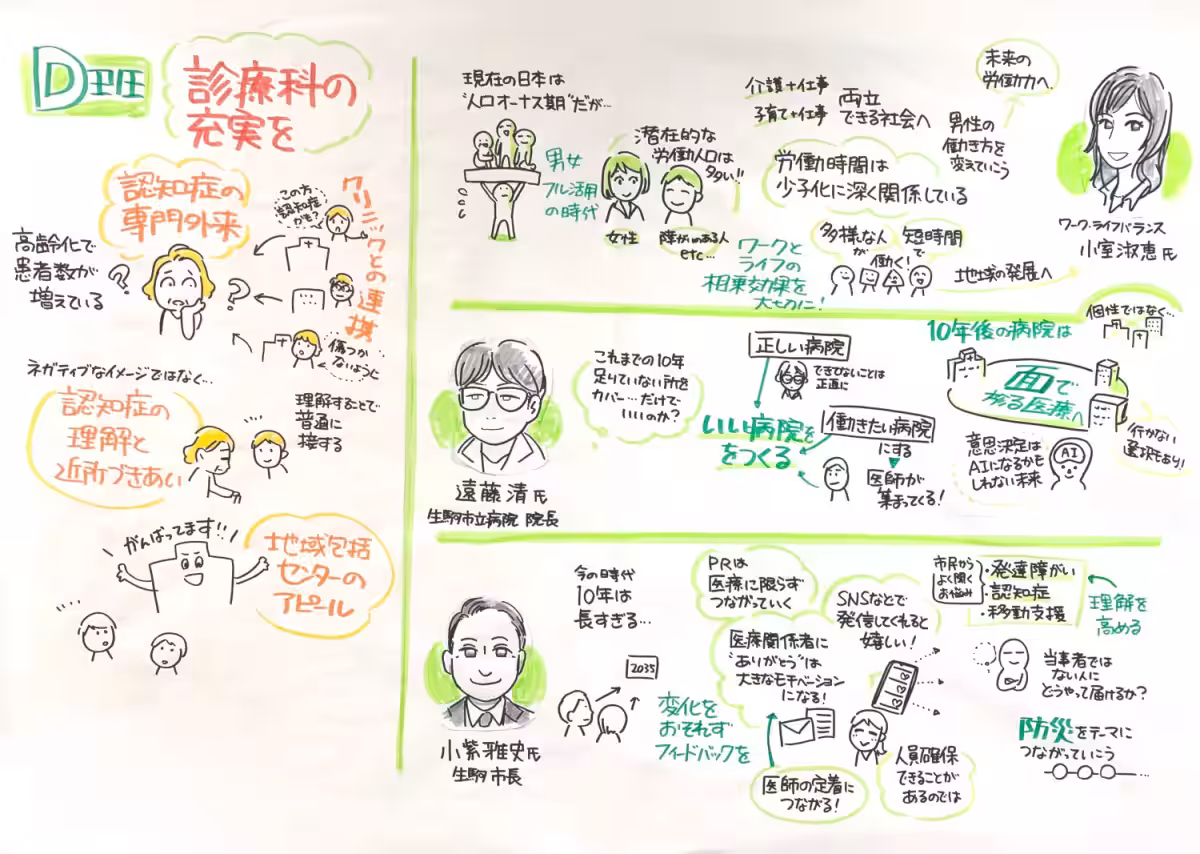 D
診療科の
充実を
認知症の
専門外来
高齢化で
患者数が
増えている
?
?
クリニックとの連携
この方
認知症
かも?
傷つか
ないように
ネガティブなイメージではなく…
認知症の
理解と
近所づきあい
理解することで
普通に
接する
がんばってます!!
地域包括
センターの
アピール
現在の日本は
"人口オーナス期"だが…
男女
フル活用
の時代
潜在的な
労働人口は
多い!!
女性
障がいのある人
etc…
介護+仕事
子育て+仕事
両立
できる社会へ
労働時間は
少子化に深く関係している
男性の
働き方を
変えていこう
未来の
労働力へ
ワークと
ライフの
相乗効果を
大切に!
多様な人
が
短時間
で
働く!
地域の発展へ
ワーク・ライフバランス
小室淑恵氏
遠藤清氏
生駒市立病院 院長
これまでの10年
足りていない所を
カバー…だけで
いいのか?
正しい病院
できないことは
正直に
いい病院を
をつくる
働きたい病院
にする
医師が
集まってくる!
10年後の病院は
個性ではなく…
面で
ある医療へ
行かない
選択もあり!
意思決定は
AIになるかも
しれない未来
AI
小紫雅史氏
生駒市長
今の時代
10年は
長すぎる…
2035
変化を
おそれず
フィードバックを
PRは
医療に限らず
つながっていく
医療関係者に
"ありがとう"は
大きなモチベーション
になる!
医師の定着に
つながる!
SNSなどで
発信してくれると
嬉しい!
人員確保
できることが
あるのでは
市民から
よく聞く
お悩み
・発達障がい
・認知症
・移動支援
理解を
高める
当事者では
ない人に
どうやって届けるか?
防災をテーマに
つながっていこう